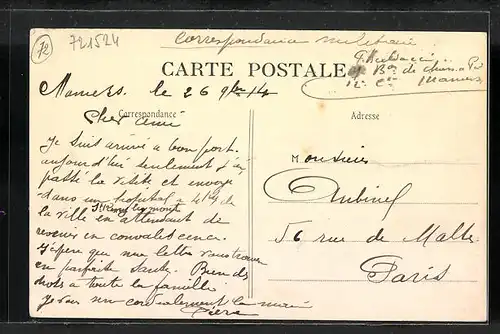 72
721524
Correspondance militaire
CARTE POSTALE
Mamers. le 26 9bre 14
Correspondance
Cher ami
Je suis arrivé a bon port.
aujourd'hui seulement j'ai
passé la visite et envoyé
dans un hopital a de
la ville en attendant de
revenir en convalescence.
J'espère que ma lettre vous trouve
en parfaite santé. Bien des
à toute la famille
Je vous cordialement la main
Adresse
Monsieur
Aubinel
56 rue de Malte
Paris
12e Cie Mamers